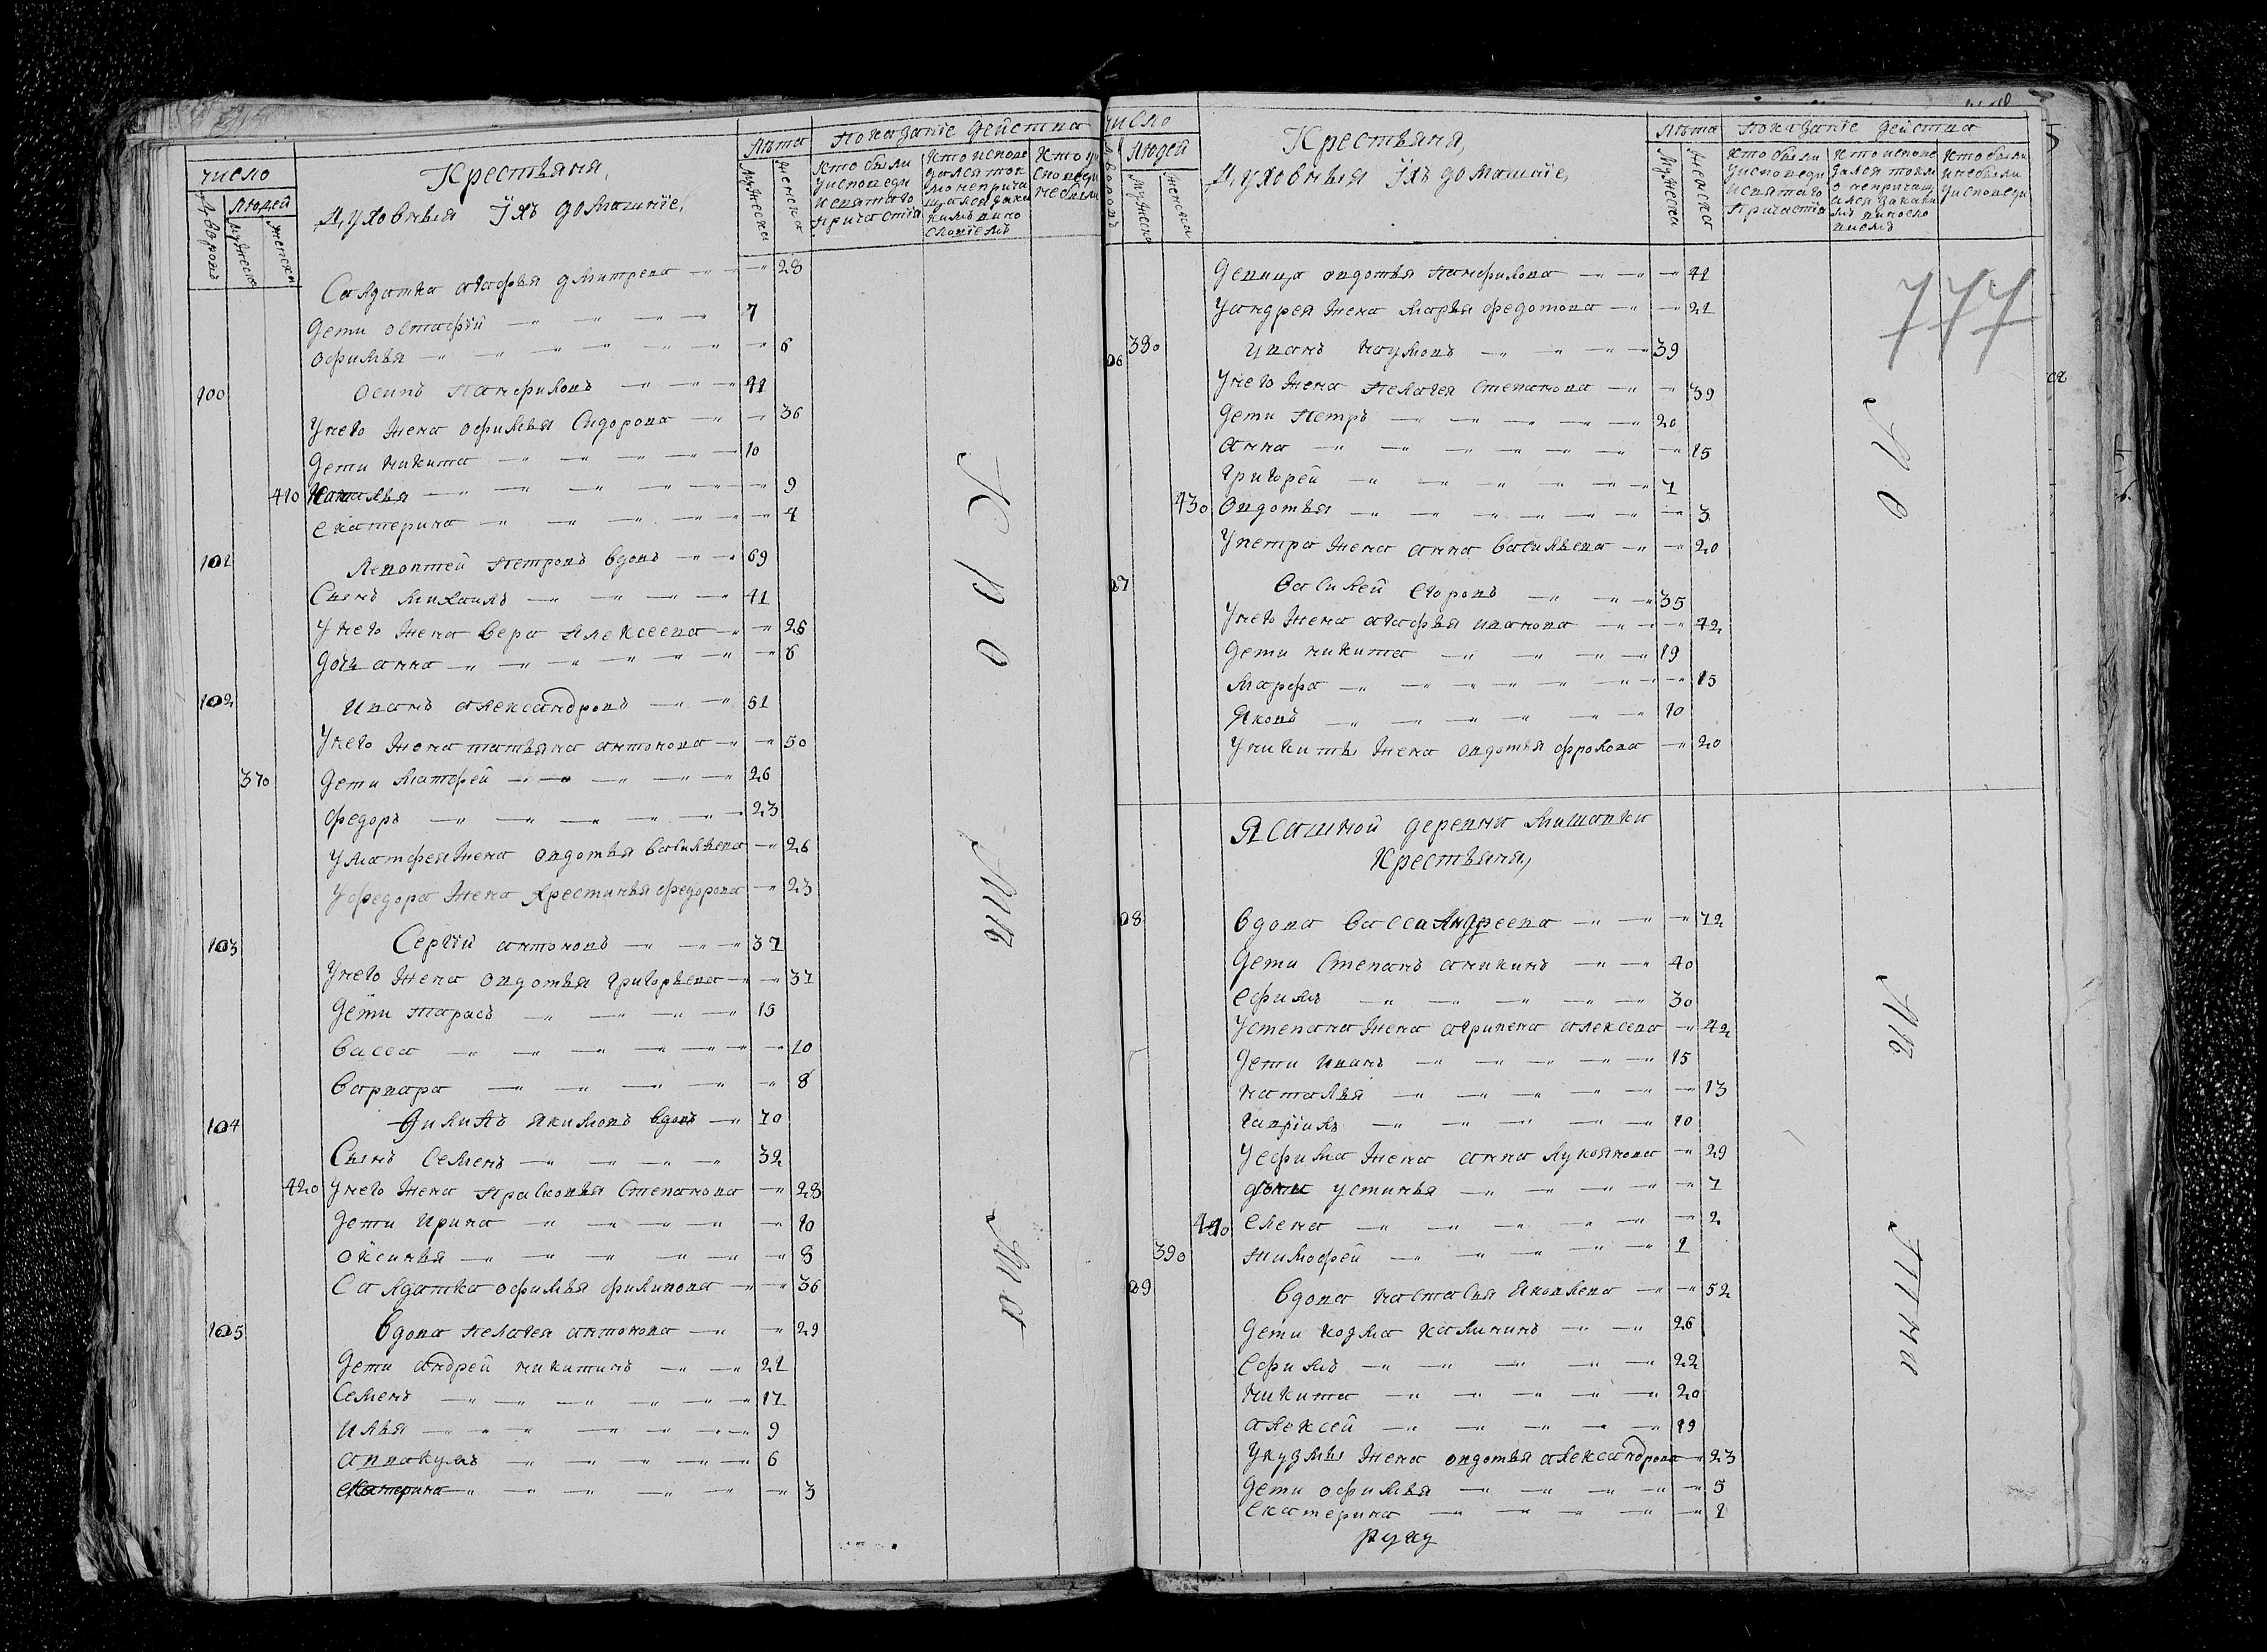 число
Людей
Дворовъ
мужеска
женска
Крестьяня,
Духовныя Ӱхъ домашніе,
Лѣта
мужеска
женска
показаніе действа
Кто были
уисповеди
исвятаго
причастія
Солдатка агафья дмитрева 28
дети остафій 7
офимья 6
100 осипъ панфиловъ 41
унего жена офимья Сидорова 36
дети никита 10
410 Наталья 9
екатерина 4
101 Левонтей петровъ вдовъ 69
Сынъ михаилъ 41
унего жена вера алексеева 26
дочь анна 6
102 иванъ александровъ 51
унего жена татьяна антонова 50
370 дети матфей 26
федоръ 23
уматфея жена овдотья васильева 26
уфедора жена Хрестинья федорова 23
103 Сергій антоновъ 37
унего жена овдотья григорьева 37
дети тарасъ 15
васса 10
варвара 8
104 Филипъ якимовъ вдовъ 70
Сынъ Семенъ 32
420 унего жена прасковья Степанова 28
дети ирина 10
оксинья 8
Салдатка офимья филипова 36
105 вдова пелагея антонова 29
дети андрей никитинъ 21
Семенъ 17
илья 9
аввакумъ 6
екатерина 3
Ско
ми
число
Людей
мужеска
женска
Крестьяня,
Духовныя Ӱхъ домашніе,
Лѣта
мужеска
женска
показаніе действа
Кто были
уисповеди
исвятаго
причастія
Кто были
инебыли
уисповеди
777
девица овдотья панфилова 41
уандрея жена марья федотова 21
06 380 иванъ наумовъ 39
унего жена пелагея степанова 39
дети петръ 20
анна 15
григорей 7
430 овдотья 3
упетра жена анна васильева 20
07 василей егоровъ 35
унего жена агафья иванова 42
дети никита 19
марфа 15
яковъ 10
уникиты жена овдотья фролова 20
Ясашной деревни мишавки
Крестьяня,
08 вдова васса андреева 72
дети степанъ аникинъ 40
ефимъ 30
устепана жена агрипена алексева 42
дети иванъ 15
наталья 13
гавріилъ 10
уефима жена анна лукоянова 29
дети устинья 7
440 елена 2
390 тимофей 1
09 вдова настасья яковлева 52
дети козма калининъ 26
ефимъ 22
никита 20
алексей 19
укузмы жена овдотья александрова 23
дети офимья 5
екатерина 1
руку